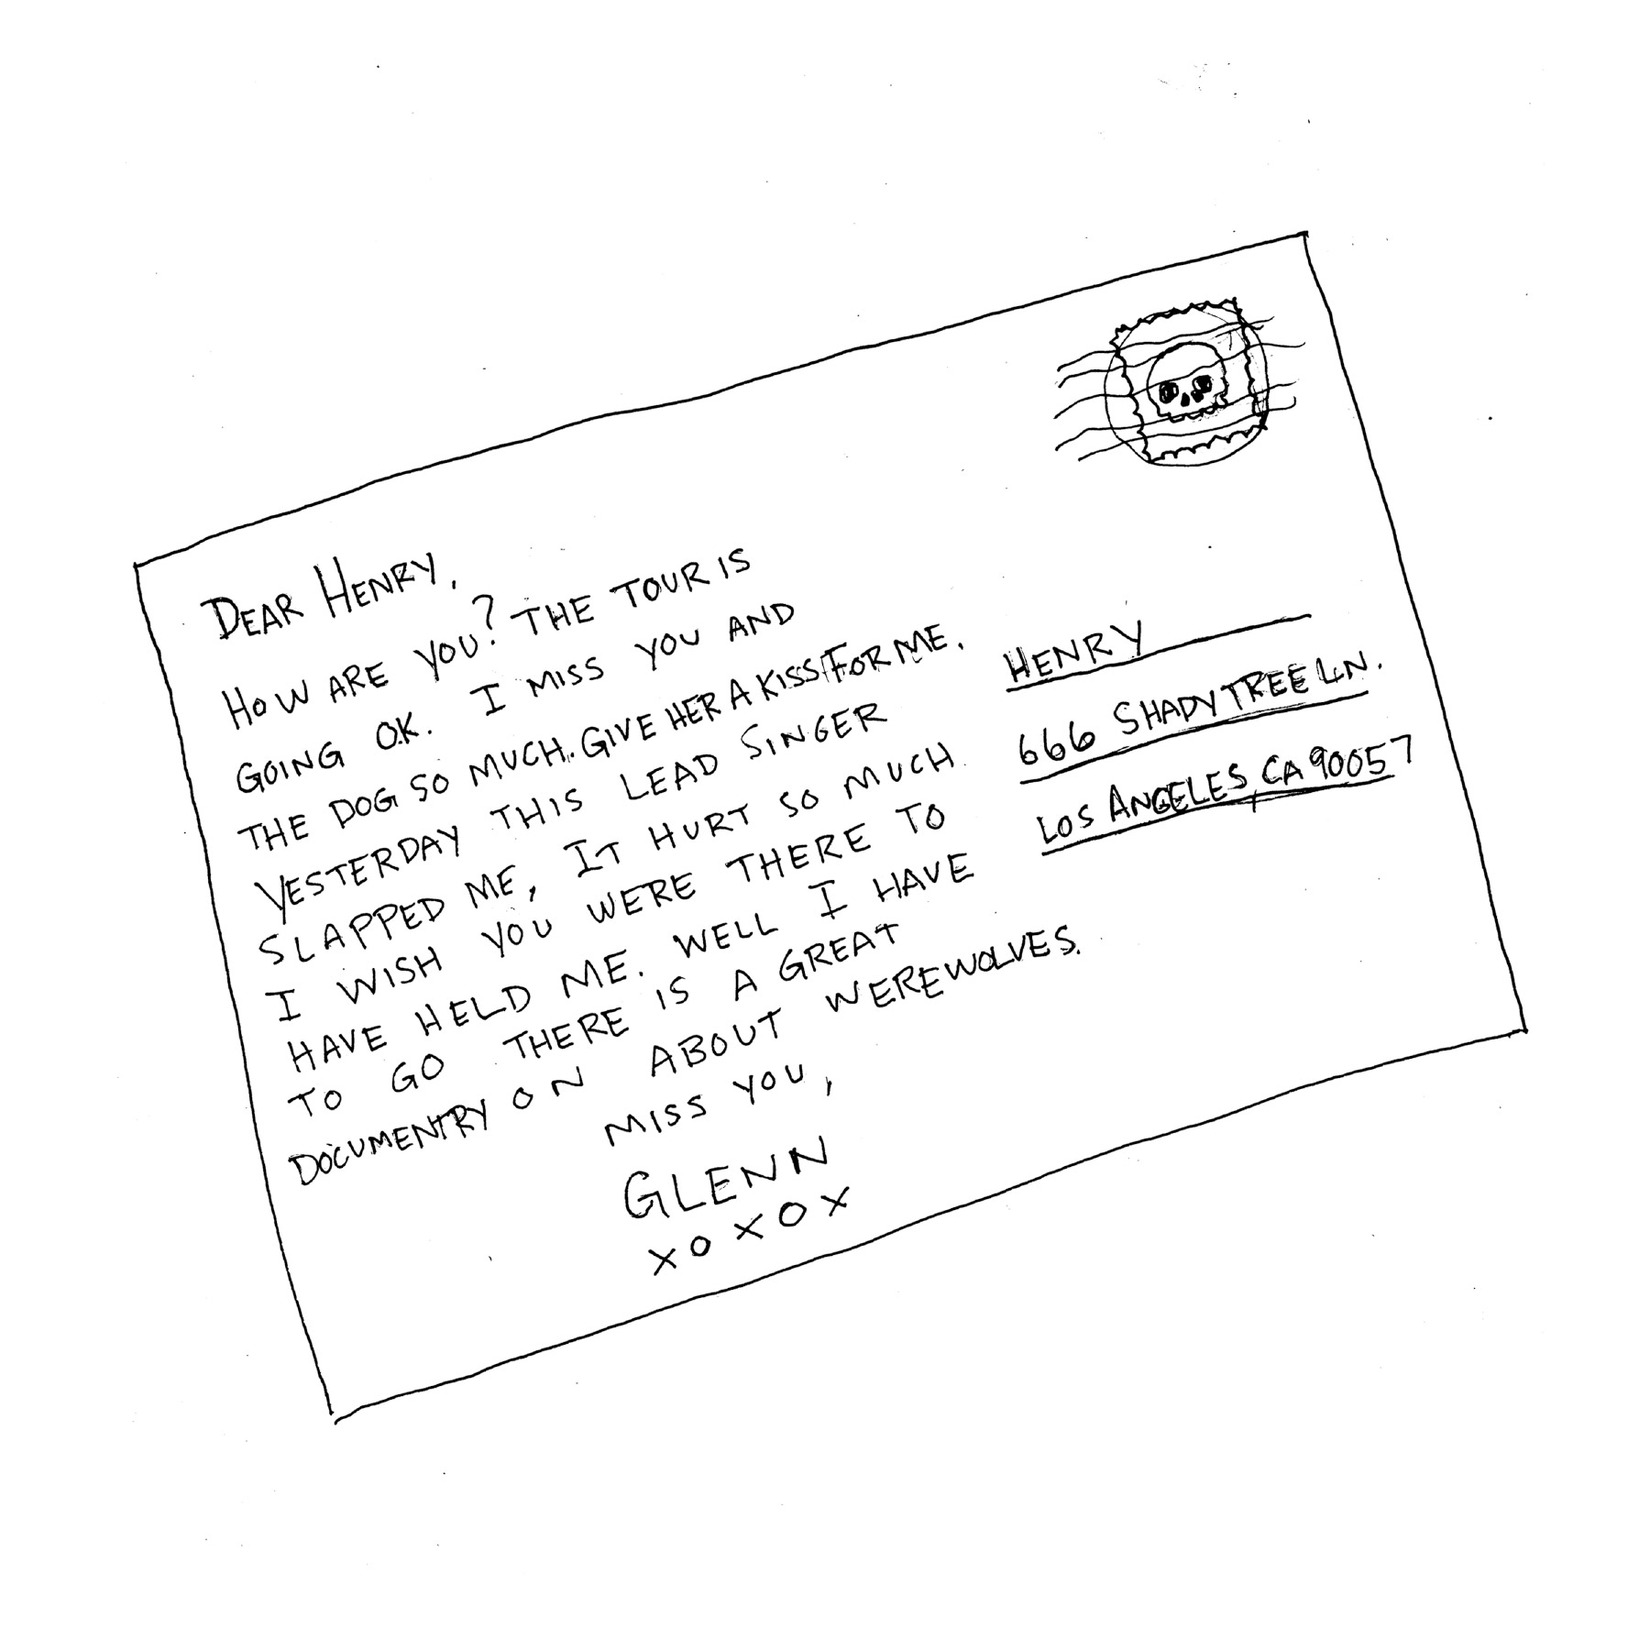 DEAR HENRY,
HOW ARE YOU? THE TOUR IS
GOING O.K. I MISS YOU AND
THE DOG SO MUCH. GIVE HER A KISS FOR ME.
YESTERDAY THIS LEAD SINGER
SLAPPED ME, IT HURT SO MUCH
I WISH YOU WERE THERE TO
HAVE HELD ME. WELL I HAVE
TO GO THERE IS A GREAT
DOCUMENTRY ON ABOUT WEREWOLVES.
MISS YOU,
GLENN
XOXOX
HENRY
666 SHADY TREE LN.
LOS ANGELES, CA 90057